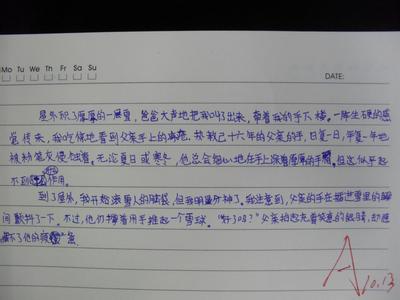 Mo Tu We Th Fr Sa Su
DATE:
屋外积了厚厚的一层雪,爸爸大声地把我叫出来,牵着我的手下楼。一阵生硬的感
觉传来,我吃惊地看到父亲手上的。抚我已十六年的父亲的手,日复一日,年复一年地
被粉笔灰侵蚀着。无论夏日或寒冬,他总会细心地在手上涂着厚厚的手,但这似乎起
不到作用。
到了屋外,我开始滚雪人的脑袋,但我明显分神了。我注意到,父亲的手在插进雪里的瞬
间颤抖了一下。不过,他仍撑着用手堆起一个雪球。“好了吗?”父亲抬起充着笑意的眼睛,却遮
不了他的疲惫。
A
10.13